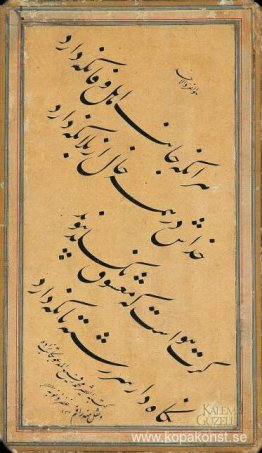 هر آنکه جانب اهل وفا نگه دارد
خداش در همه حال از بلا نگه دارد
گرت هواست که معشوق نگسلد پیوند
نگاه دار سر رشته تا نگه دارد
KALEM
GÜZELİ
www.kopakonst.se